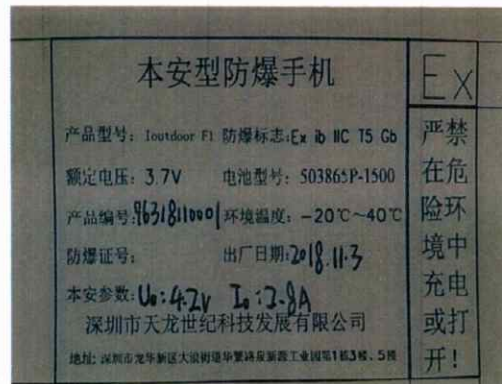 本安型防爆手机
产品型号: Ioutdoor F1 防爆标志:Ex ib IIC T5 Gb
额定电压: 3.7V 电池型号: 503865P-1500
产品编号:96318110001 环境温度: -20℃~40℃
防爆证号: 出厂日期:2018.11.3
本安参数:U₀:4.2V I₀:2.8A
深圳市天龙世纪科技发展有限公司
地址: 深圳市龙华新区大浪街道华繁路泉新源工业园第1栋3楼、5楼
Ex
严禁
在危
险环
境中
充电
或打
开!